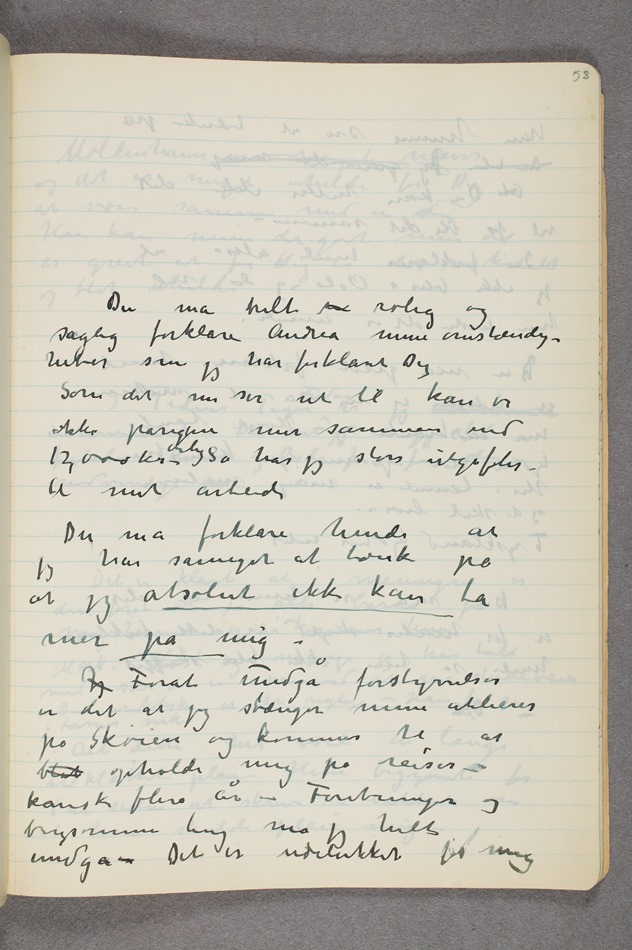 53
Du må helt rolig og
saglig forklare Andrea mine omstændig-
heter som jeg har forklart Dig
Som det nu ser ut til kan vi
ikke mer sammen end
12,000 kr – Så har jeg store utgifter –
til mit arbeide
Du må forklare hende at
jeg har så meget at tænke på
at jeg absolut ikke kan ta
mer på mig –
Jeg Forat undgå forstyrrelser
er det at jeg stænger mine atelierer
på Skøien og kommer til at
blot opholde mig på reiser –
kanske flere år – Forviklinger og
brysomme ting må jeg helt
undgå – Det er udelukket for mig